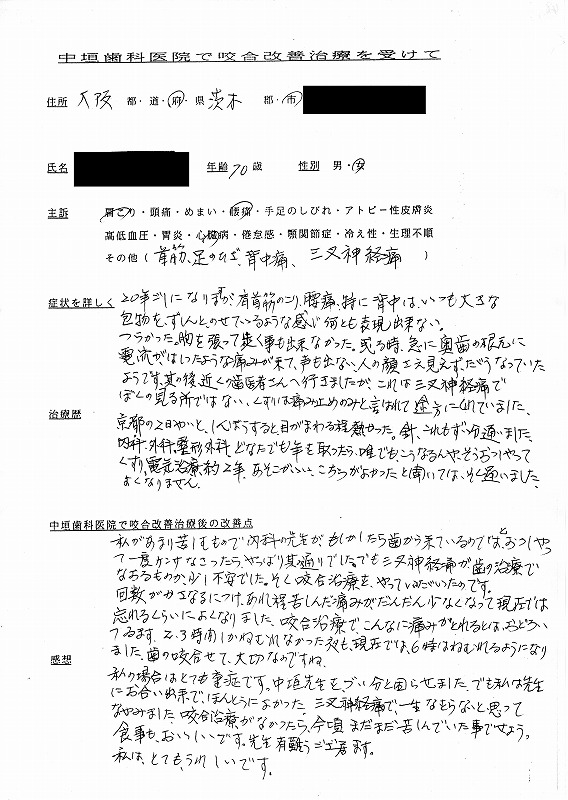 中垣歯科医院で咬合改善治療を受けて
住所 大阪 都・道・府・県 茨木 郡・市
氏名 年齢 70 歳 性別 男・女
主訴 肩こり・頭痛・めまい・腰痛・手足のしびれ・アトピー性皮膚炎
高低血圧・胃炎・心臓病・倦怠感・顎関節症・冷え性・生理不順
その他（ 首筋、足のひざ、背中痛、三叉神経痛 ）
症状を詳しく 20年ごしになりますが、肩首筋のこり、腰痛、特に背中は、いつも大きな
包物を、ずんと、のせているような感じ何とも表現出来ない。
つらかった。胸を張って歩く事も出来なかった。或る時、急に奥歯の根元に
電流がはしったような痛みが来て、声も出ない、人の顔さえ見えずだうなっていた
ようです。其の後、近くの歯医者さんへ行きましたが、これは三叉神経痛で
ぼくの見る所ではない、くすりは痛み止めのみと言はれて途方にくれていました。
治療歴 京都の2日やいと、(んばうすると目がまわる程熱かった。針、これもずい分通いました。
内科、外科、整形外科 どなたでも年を取ったら、唯でもこうなるんや、そうおっしゃって
くすり、電気治療約2年、あそこがいい、こちらがよかったと聞いては、そく通いました。
よくなりません。
中垣歯科医院で咬合改善治療後の改善点
私があまり苦しむもので内科の先生が、もしかしたら歯から来ているのではとおっしゃっ
て一度ケンサなさったら、やっぱり其の通りでした。でも三叉神経痛が歯の治療で
なおるものか、少し不安でした。そく咬合治療を、やっていただいたのです。
回数がかさなるにつけ、あれ程苦しんだ痛みがだんだん少なくなって現在では
忘れるくらいによくなりました。咬合治療で、こんなに痛みがとれるとは、おどろい
てゐます。2、3時間しかねむれなかった夜も、現在では、6時はねむれるようになり
ました。歯の咬合せて、大切なのですね。
感想 私の場合はとても重症です。中垣先生を、ずい分と困らせました。でも私は先生
にお合い出来て、ほんとうによかった。三叉神経痛で、一生なおらないと思って
なやみました。咬合治療がなかったら、今頃まだまだ苦しんでいた事でせう。
食事も、おいしいです。先生有難うご座居ます。
私は、とても、うれしいです。